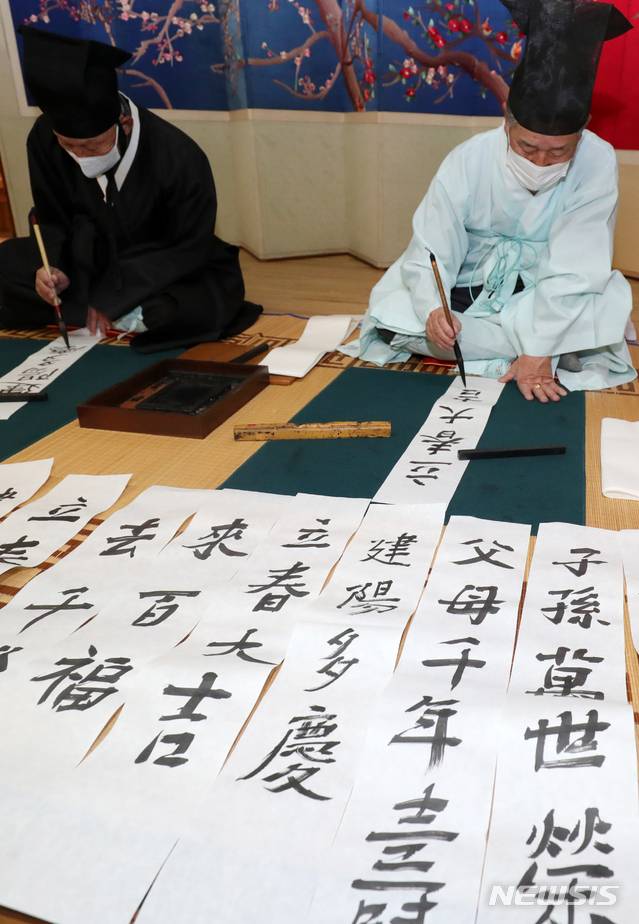 子孫萬世榮
父母千年壽
建陽多慶
立春大吉
來百福
去千
立春
立春大吉
NEWSIS